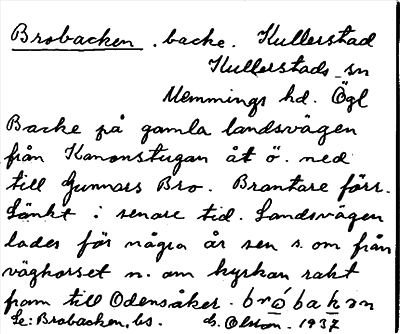 Brobacken. backe. Kullerstad
Kullerstads sn
Memmings hd. Ögl
Backe på gamla landsvägen
från Kanonstugan åt ö. ned
till Gunnars Bro. Brantare förr.
Sänkt i senare tid. Landsvägen
lades för några år sen s. om från
vägkorset n. om kyrkan rakt
fram till Odensåker. bróbakən
Se: Brobacken, bs. G. Olston. 1937